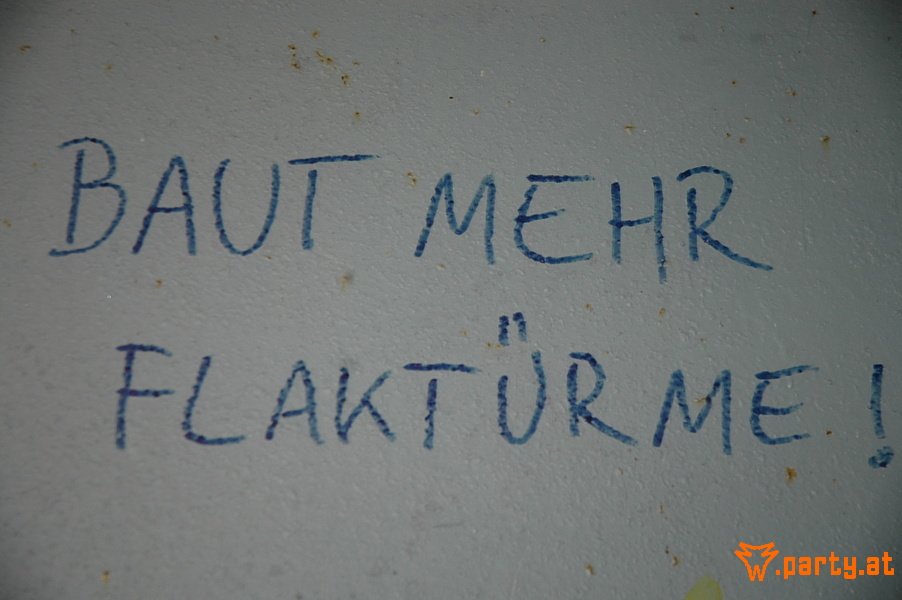 BAUT MEHR
FLAKTÜRME!
W.party.at